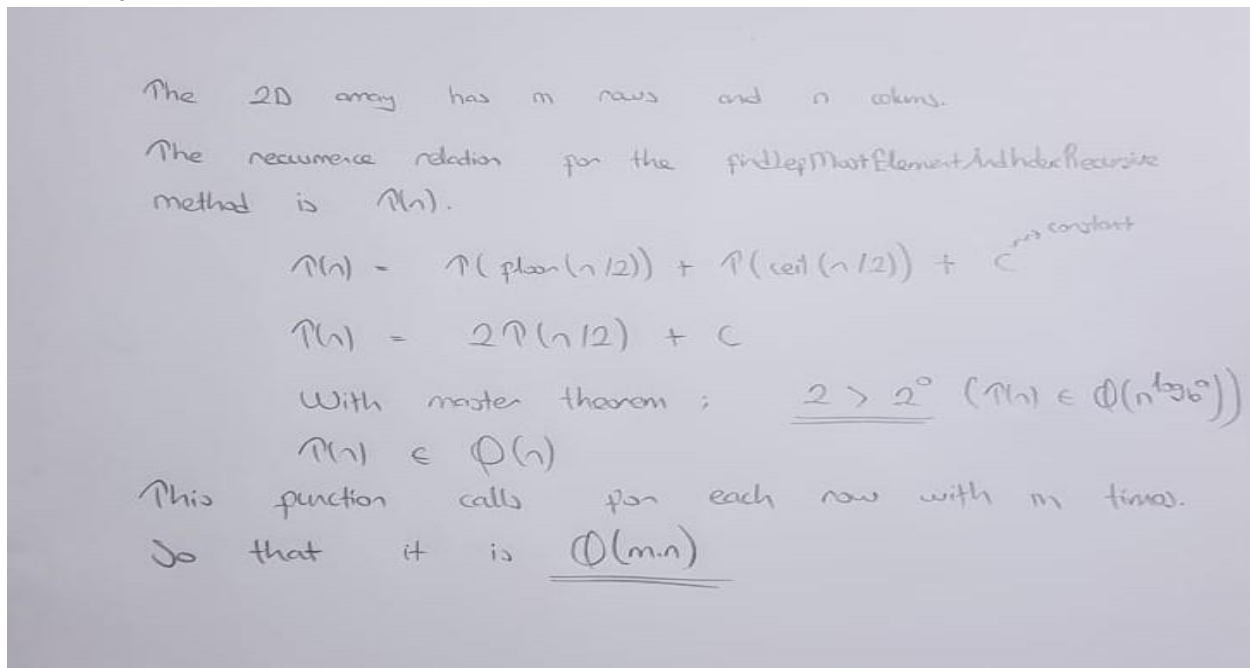 The 2D array has m rows and n colums.
The recurrence relation for the findLeftMostElementAndIndexRecursive
method is T(n).
T(n) = T(floor(n/2)) + T(ceil(n/2)) + C → constant
T(n) = 2T(n/2) + C
With master theorem ; 2 > 2⁰ (T(n) ∈ Θ(n^log_b^a))
T(n) ∈ Θ(n)
This function calls for each row with m times.
So that it is Θ(m.n)